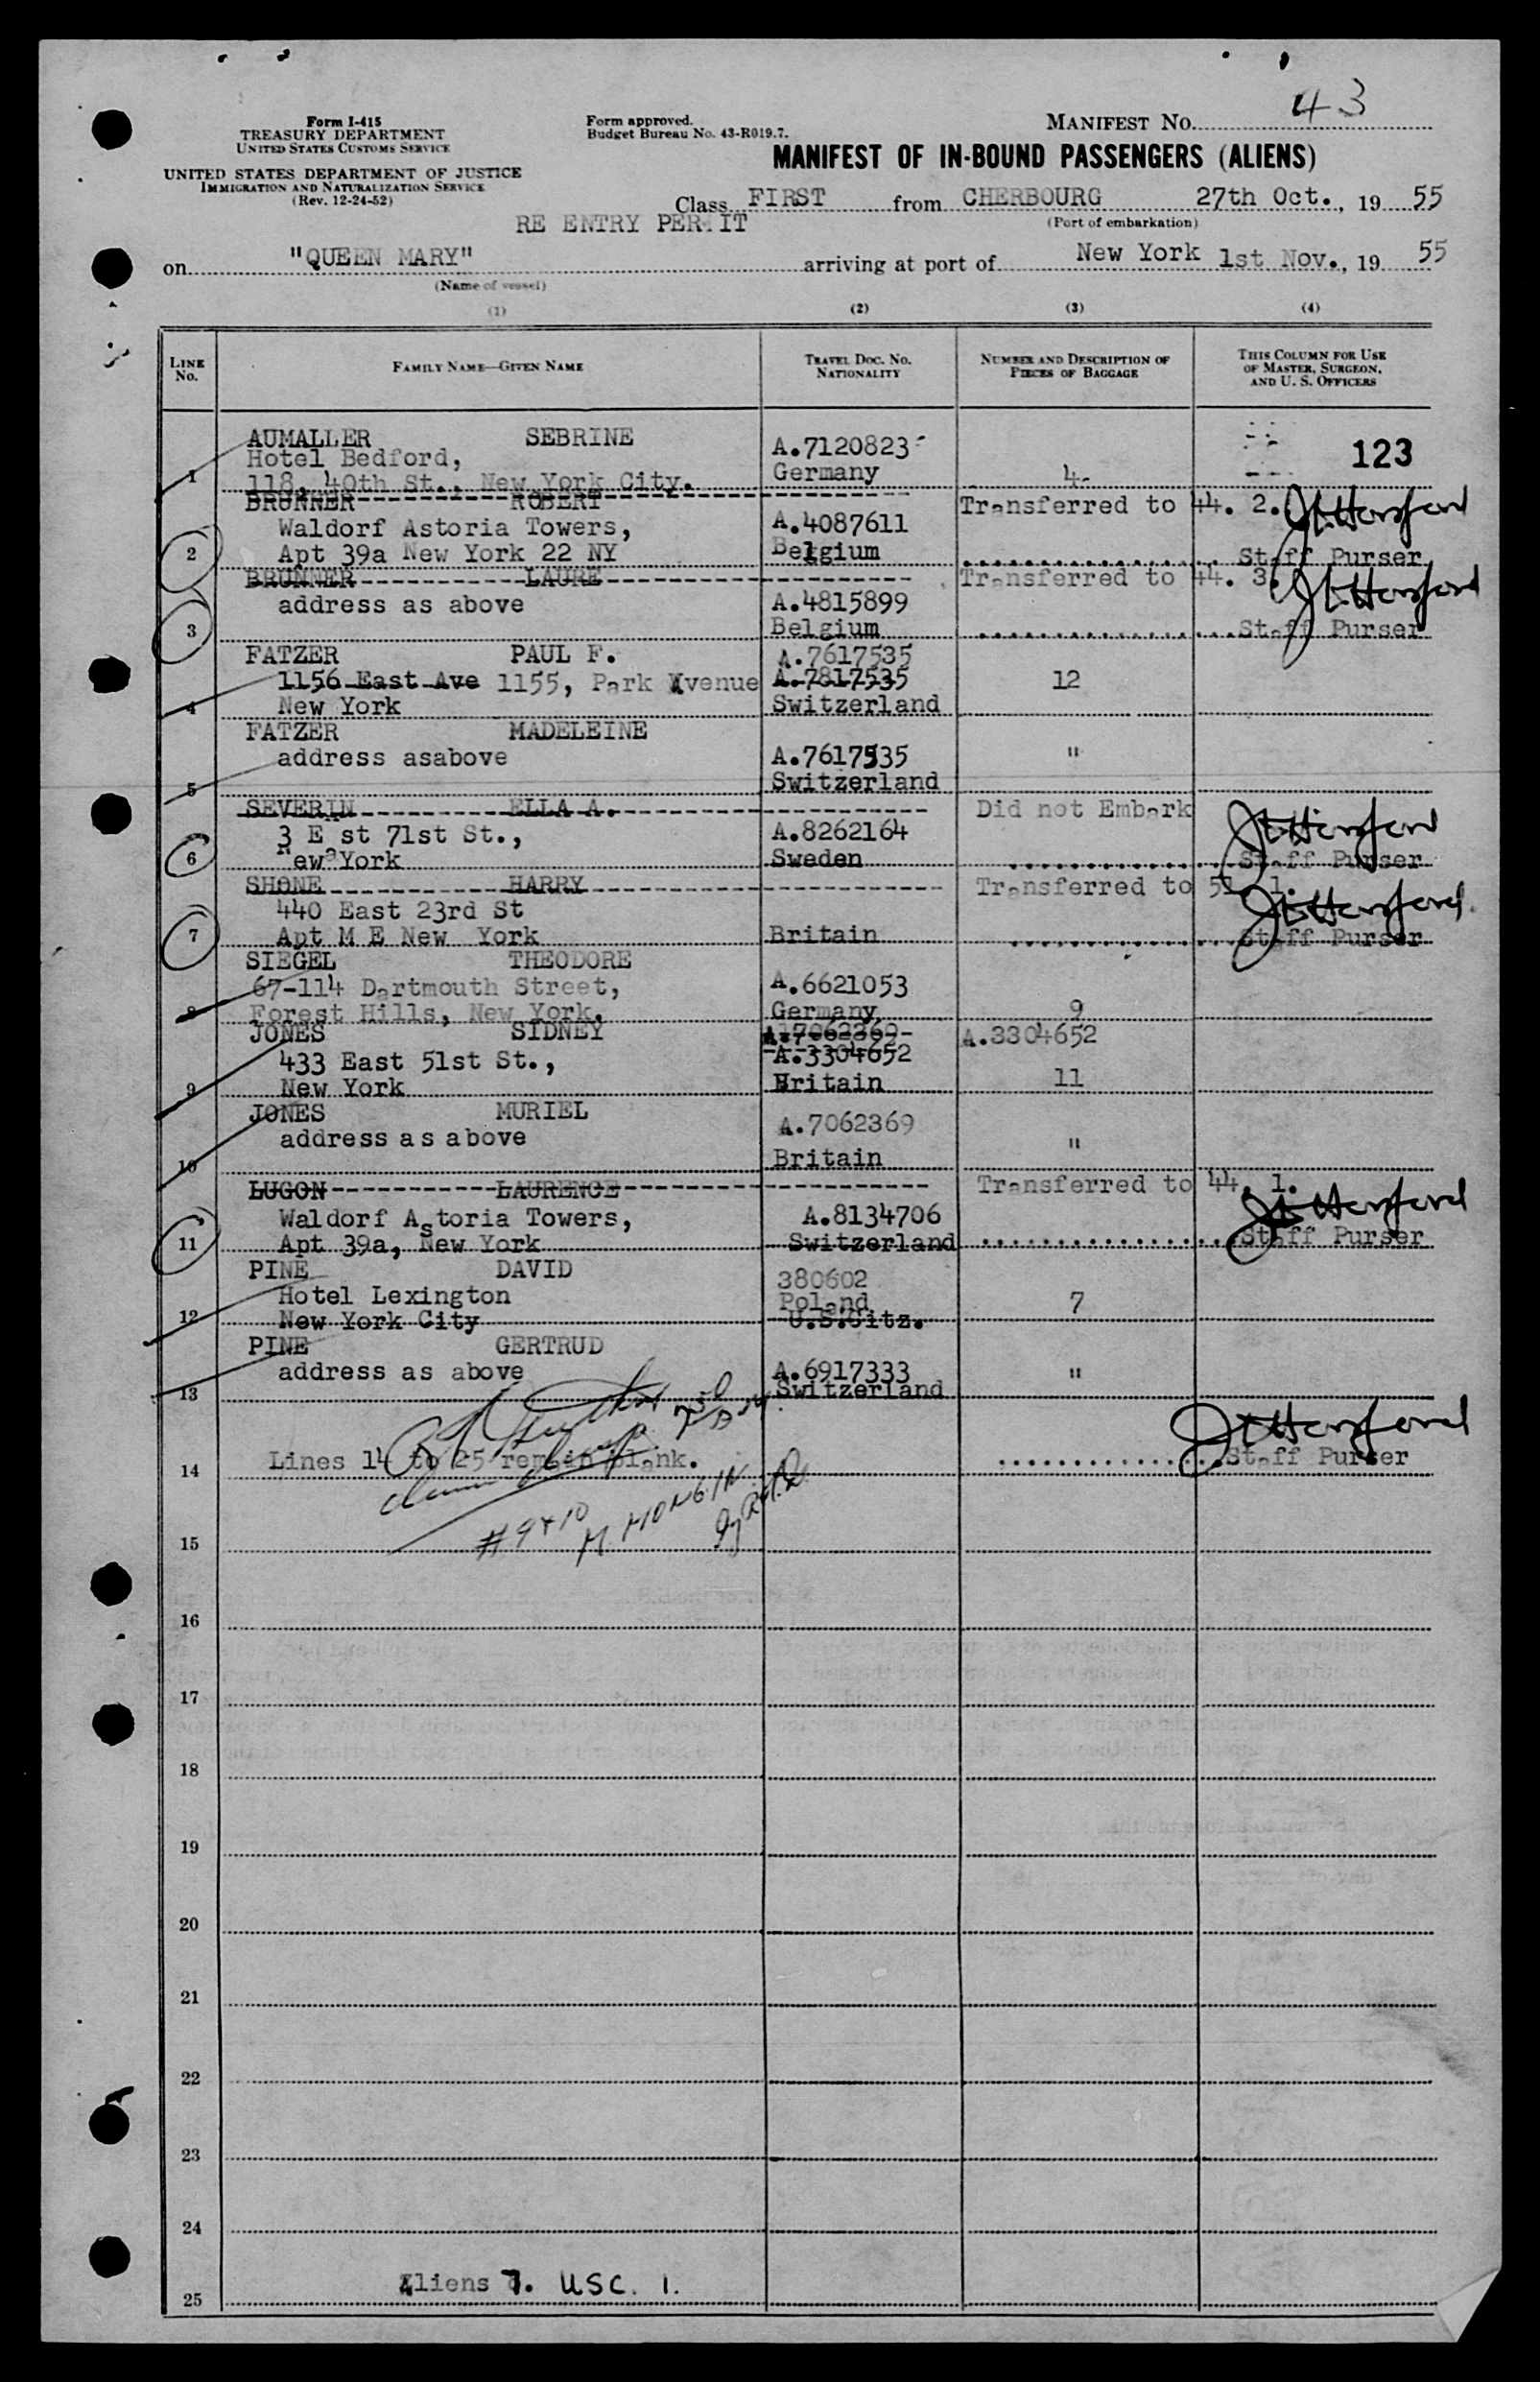 43
Form I-415
TREASURY DEPARTMENT
UNITED STATES CUSTOMS SERVICE
UNITED STATES DEPARTMENT OF JUSTICE
IMMIGRATION AND NATURALIZATION SERVICE
(Rev. 12-24-52)
Form approved.
Budget Bureau No. 43-R019.7.
MANIFEST NO.
MANIFEST OF IN-BOUND PASSENGERS (ALIENS)
Class FIRST from CHERBOURG 27th Oct., 19 55
(Port of embarkation)
RE ENTRY PERMIT
on "QUEEN MARY" arriving at port of New York 1st Nov., 19 55
(Name of vessel)
(1) (2) (3) (4)
LINE No.
FAMILY NAME—GIVEN NAME
TRAVEL DOC. NO. NATIONALITY
NUMBER AND DESCRIPTION OF PIECES OF BAGGAGE
THIS COLUMN FOR USE OF MASTER, SURGEON, AND U. S. OFFICERS
AUMALLER SEBRINE A.7120823 123
Hotel Bedford, Germany
1 118, 40th St., New York City. 4
BRUNNER ROBERT Transferred to 44. 2.
Waldorf Astoria Towers, A.4087611
2 Apt 39a New York 22 NY Belgium Staff Purser
BRUNNER LAURE Transferred to 44. 3.
address as above A.4815899
3 Belgium Staff Purser
FATZER PAUL F. A.7617535
1156 East Ave 1155, Park Avenue A.7817535 12
4 New York Switzerland
FATZER MADELEINE
address asabove A.7617535 "
5 Switzerland
SEVERIN ELLA A. Did not Embark
3 E st 71st St., A.8262164
6 New York Sweden Staff Purser
SHONE HARRY Transferred to 51. 1.
440 East 23rd St
7 Apt M E New York Britain Staff Purser
SIEGEL THEODORE
67-114 Dartmouth Street, A.6621053
8 Forest Hills, New York. Germany 9
JONES SIDNEY A.7062369 A.3304652
433 East 51st St., A.3304652
9 New York Britain 11
JONES MURIEL A.7062369
address as above "
10 Britain
LUGON LAURENCE Transferred to 44. 1.
Waldorf Astoria Towers, A.8134706
11 Apt 39a, New York Switzerland Staff Purser
PINE DAVID 380602
Hotel Lexington Poland 7
12 New York City U.S.Citz.
PINE GERTRUD
address as above A.6917333 "
13 Switzerland
14 Lines 14 to 25 remain blank. Staff Purser
#9410
M. MONGIN
15
16
17
18
19
20
21
22
23
24
25 Aliens 7. USC. 1.